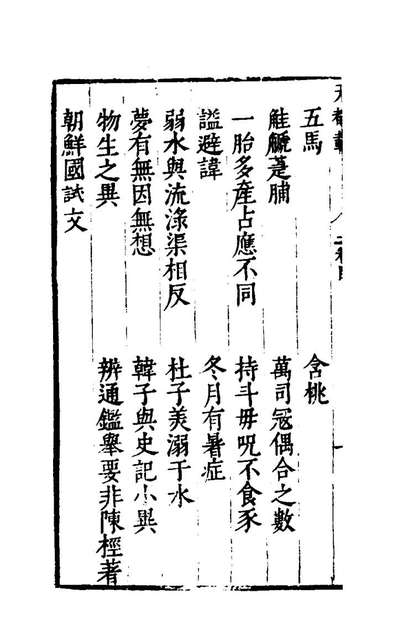 五馬　含桃
觟䚦萐脯　萬司冦偶合之數
一胎多產占應不同　持斗毋呪不食豕
謚避諱　冬月有暑症
弱水與流淥渠相反　杜子美溺于水
夢有無因無想　韓子與史記小異
物生之異　辨通鑑舉要非陳桱著
朝鮮國試文